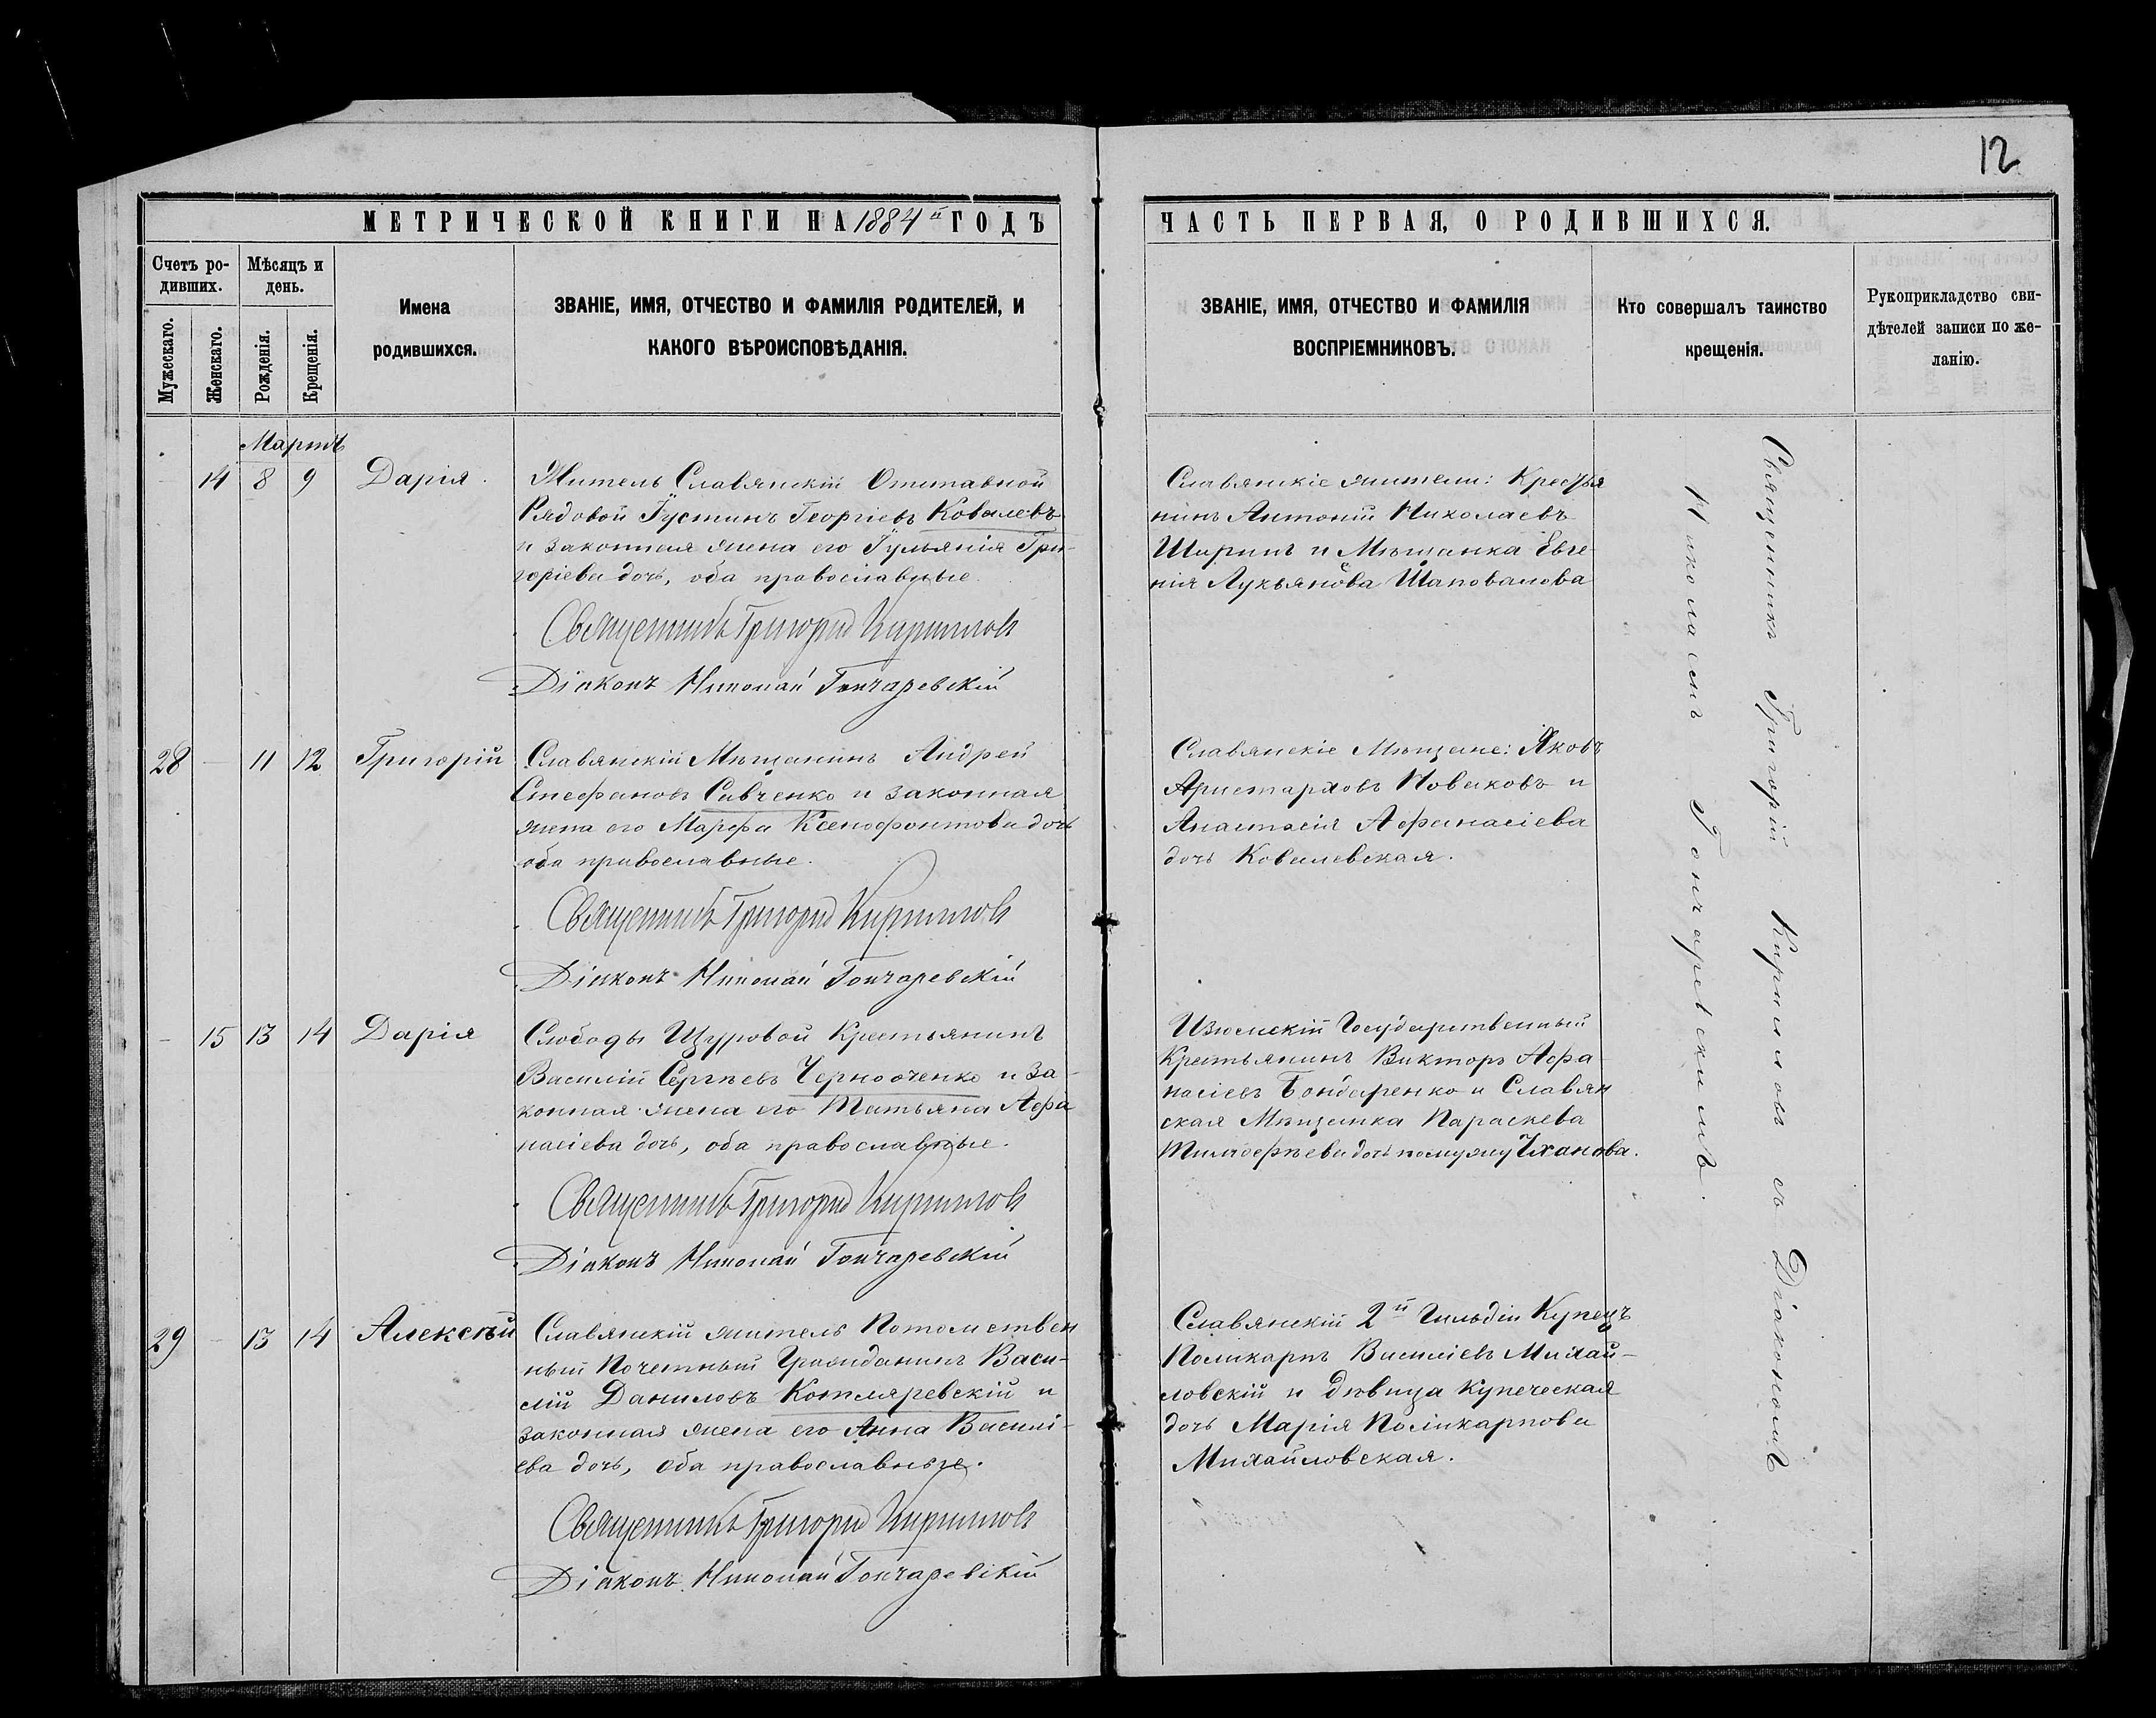 12
МЕТРИЧЕСКОЙ КНИГИ НА 1884й ГОДЪ
ЧАСТЬ ПЕРВАЯ, О РОДИВШИХСЯ.
Счетъ ро-
дивших.
Мѣсяцъ и
день.
Мужескаго.
Женскаго.
Рожденія.
Крещенія.
Имена
родившихся.
ЗВАНІЕ, ИМЯ, ОТЧЕСТВО И ФАМИЛІЯ РОДИТЕЛЕЙ, И
КАКОГО ВѢРОИСПОВѢДАНІЯ.
ЗВАНІЕ, ИМЯ, ОТЧЕСТВО И ФАМИЛІЯ
ВОСПРІЕМНИКОВЪ.
Кто совершалъ таинство
крещенія.
Рукоприкладство сви-
дѣтелей записи по же-
ланію.
Мартъ
14 8 9 Дарія.
Житель Славянскій Отставной
Рядовой Іустинъ Георгіевъ Ковалевъ
и законная жена его Іульянія Гри-
горіева дочь, оба православные.
Священникъ Григорій Кирилловъ
Діаконъ Николай Гончаревскій
Славянскіе жители: Крестья
нинъ Антоній Николаевъ
Ширинъ и Мѣщанка Евге
нія Лукьянова Шаповалова
28 — 11 12 Григорій
Славянскій Мѣщанинъ Андрей
Стефановъ Савченко и законная
жена его Марфа Ксенофонтова дочь
оба православные.
Священникъ Григорій Кирилловъ
Діаконъ Николай Гончаревскій
Славянскіе Мѣщане: Яковъ
Аристарховъ Новаковъ и
Анастасія Афанасіева
дочь Ковалевская.
— 15 13 14 Дарія
Слободы Щуровой Крестьянинъ
Василій Сергѣевъ Чернооченко и за-
конная жена его Татьяна Афа
насіева дочь, оба православные.
Священникъ Григорій Кирилловъ
Діаконъ Николай Гончаревскій
Изюмскій Государственный
Крестьянинъ Викторъ Афа-
насіевъ Бондаренко и Славян
ская Мѣщанка Параскева
Тимофѣева дочь по мужу
29 — 13 14 Алексѣй
Славянскій житель Потомствен
ный Почетный Гражданинъ Васи-
лій Даниловъ Котляревскій и
законная жена его Анна Василі-
ева дочь, оба православные.
Священникъ Григорій Кирилловъ
Діаконъ Николай Гончаревскій
Славянскій 2й Гильдіи Купецъ
Поликарпъ Василіевъ Михай-
ловскій и дѣвица купеческая
дочь Марія Поликарпова
Михайловская.
Священникъ Григорій Кирилловъ съ Діакономъ
Николаемъ Гончаревскимъ.